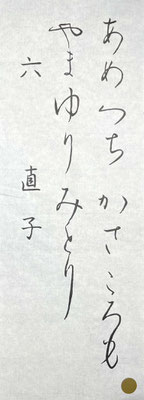 あめつち かさ ころも
やまゆり みとり
六 直子